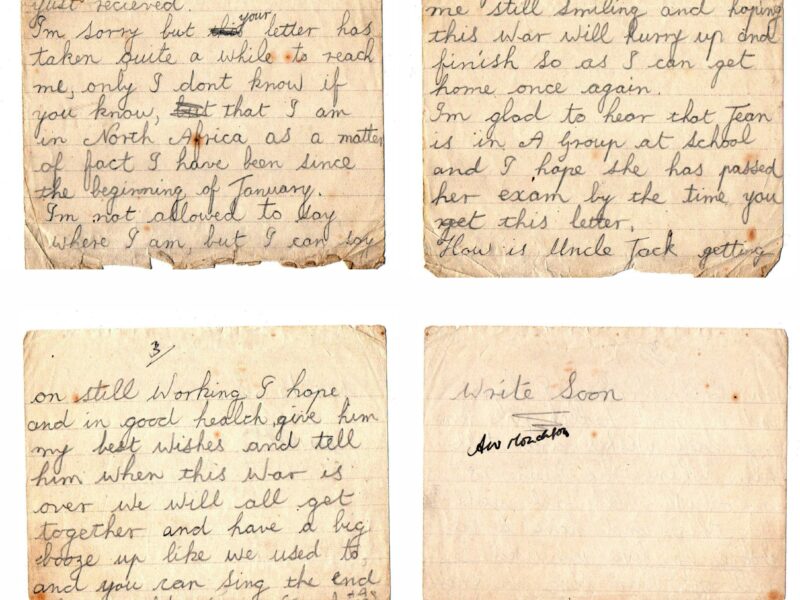 just recieved.
Im sorry but this your letter has
taken quite a while to reach
me, only I dont know if
you know, but that I am
in North Africa as a matter
of fact I have been since
the beginning of January.
Im not allowed to say
where I am, but I can say
me still smiling and hoping
this War will hurry up and
finish so as I can get
home once again.
Im glad to hear that Jean
is in A Group at School
and I hope she has passed
her exam by the time you
get this letter.
How is Uncle Jack getting
3
on still Working I hope
and in good health, give him
my best wishes and tell
him when this War is
over we will all get
together and have a big
booze up like we used to
and you can sing the end
Write Soon